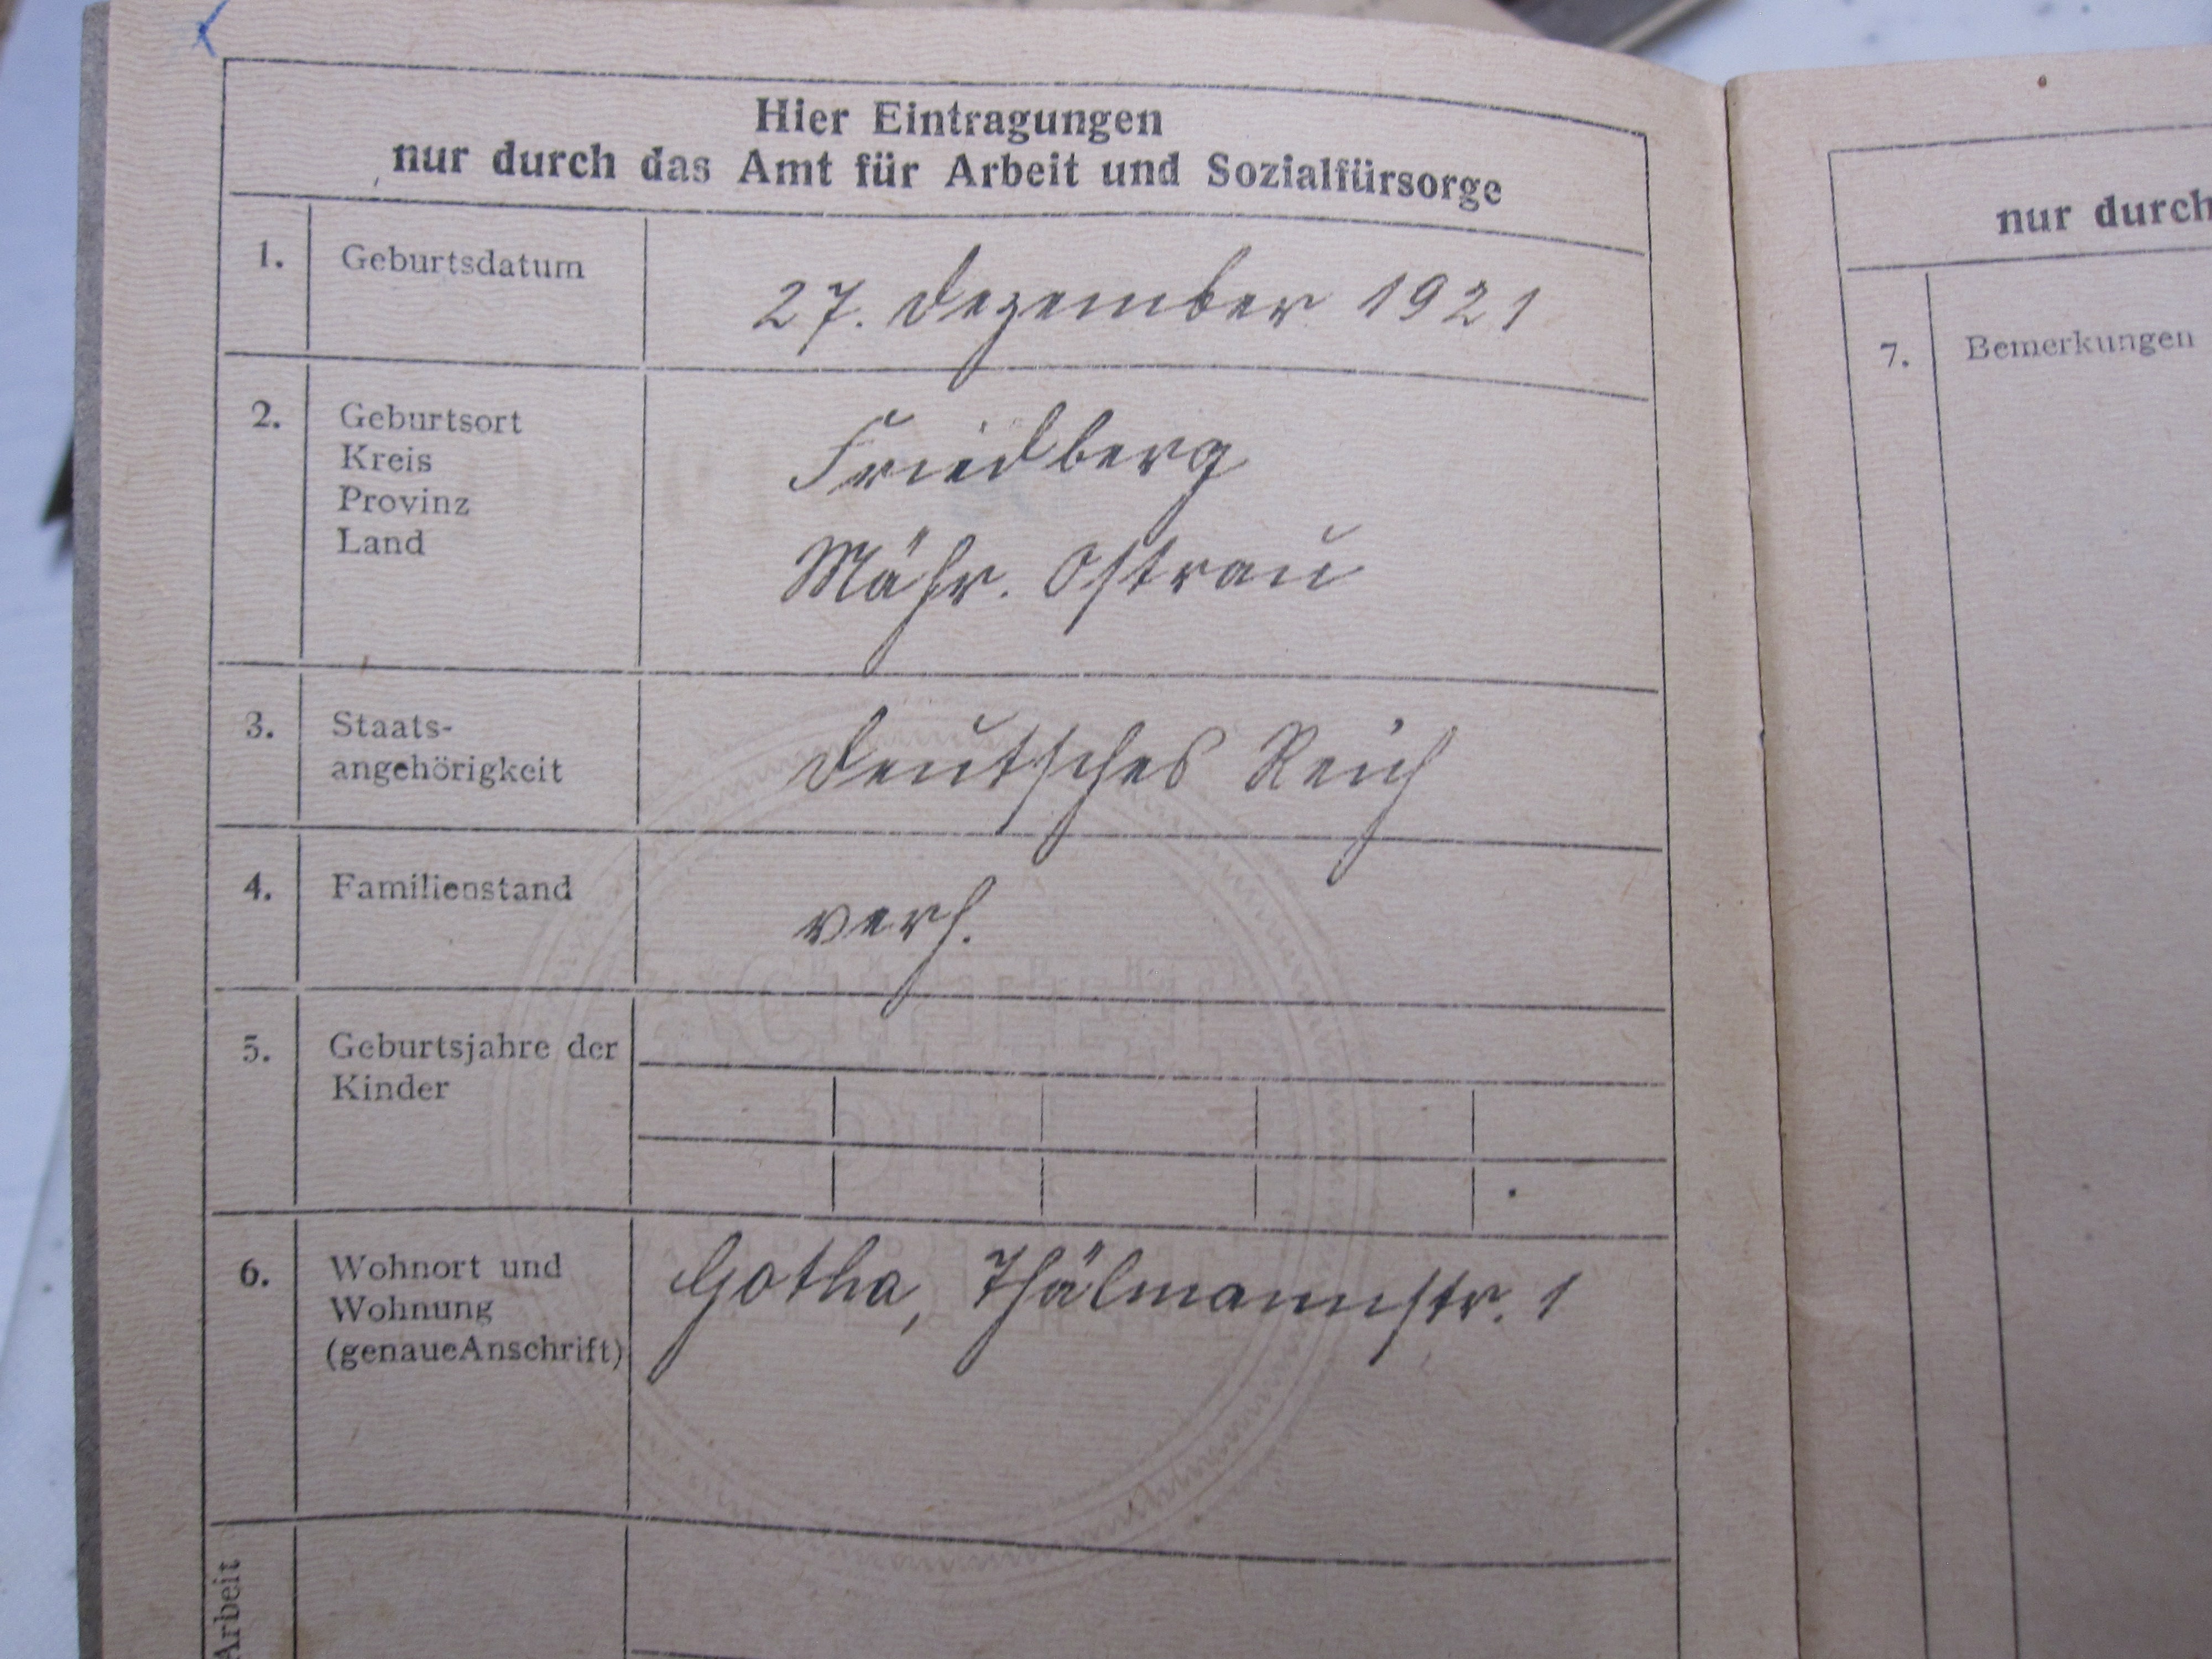 Hier Eintragungen
nur durch das Amt für Arbeit und Sozialfürsorge
1. Geburtsdatum 27. Dezember 1921
2. Geburtsort Friedberg
Kreis
Provinz Mähr. Ostrau
Land
3. Staats-
angehörigkeit Deutsches Reich
4. Familienstand verh.
5. Geburtsjahre der
Kinder
6. Wohnort und Gotha, Thälmannstr. 1
Wohnung
(genaue Anschrift)
Arbeit
nur durch
7. Bemerkungen